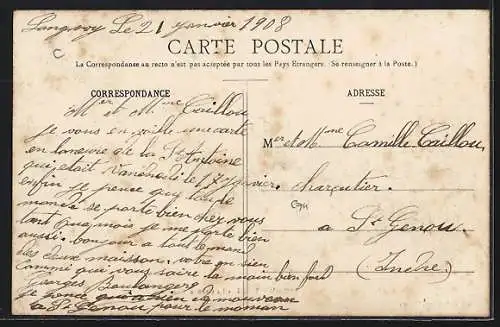 Longwy Le 21 Janvier 1908
CARTE POSTALE
La Correspondance au recto n'est pas acceptée par tous les Pays Etrangers. (Se renseigner à la Poste.)
CORRESPONDANCE
Mr et Mme Caillou
je vous en voie une carte
en loneure de la St Antoine
qui etait Vandredi le 17 Janvier
enfin je pence que tout le
monde se porte bien cher vous
tant qua moi je me porte bien
aussi. bonjour a tout le monde
les deux maison. votre on vien
Comme qui vous saire la main bien fort
Georges Boulanger
je pence quil a bien du nouveau
a St Genou pour le moman
ADRESSE
Mer et Mme Camille Caillou,
charpentier.
a St Genou.
(Indre)